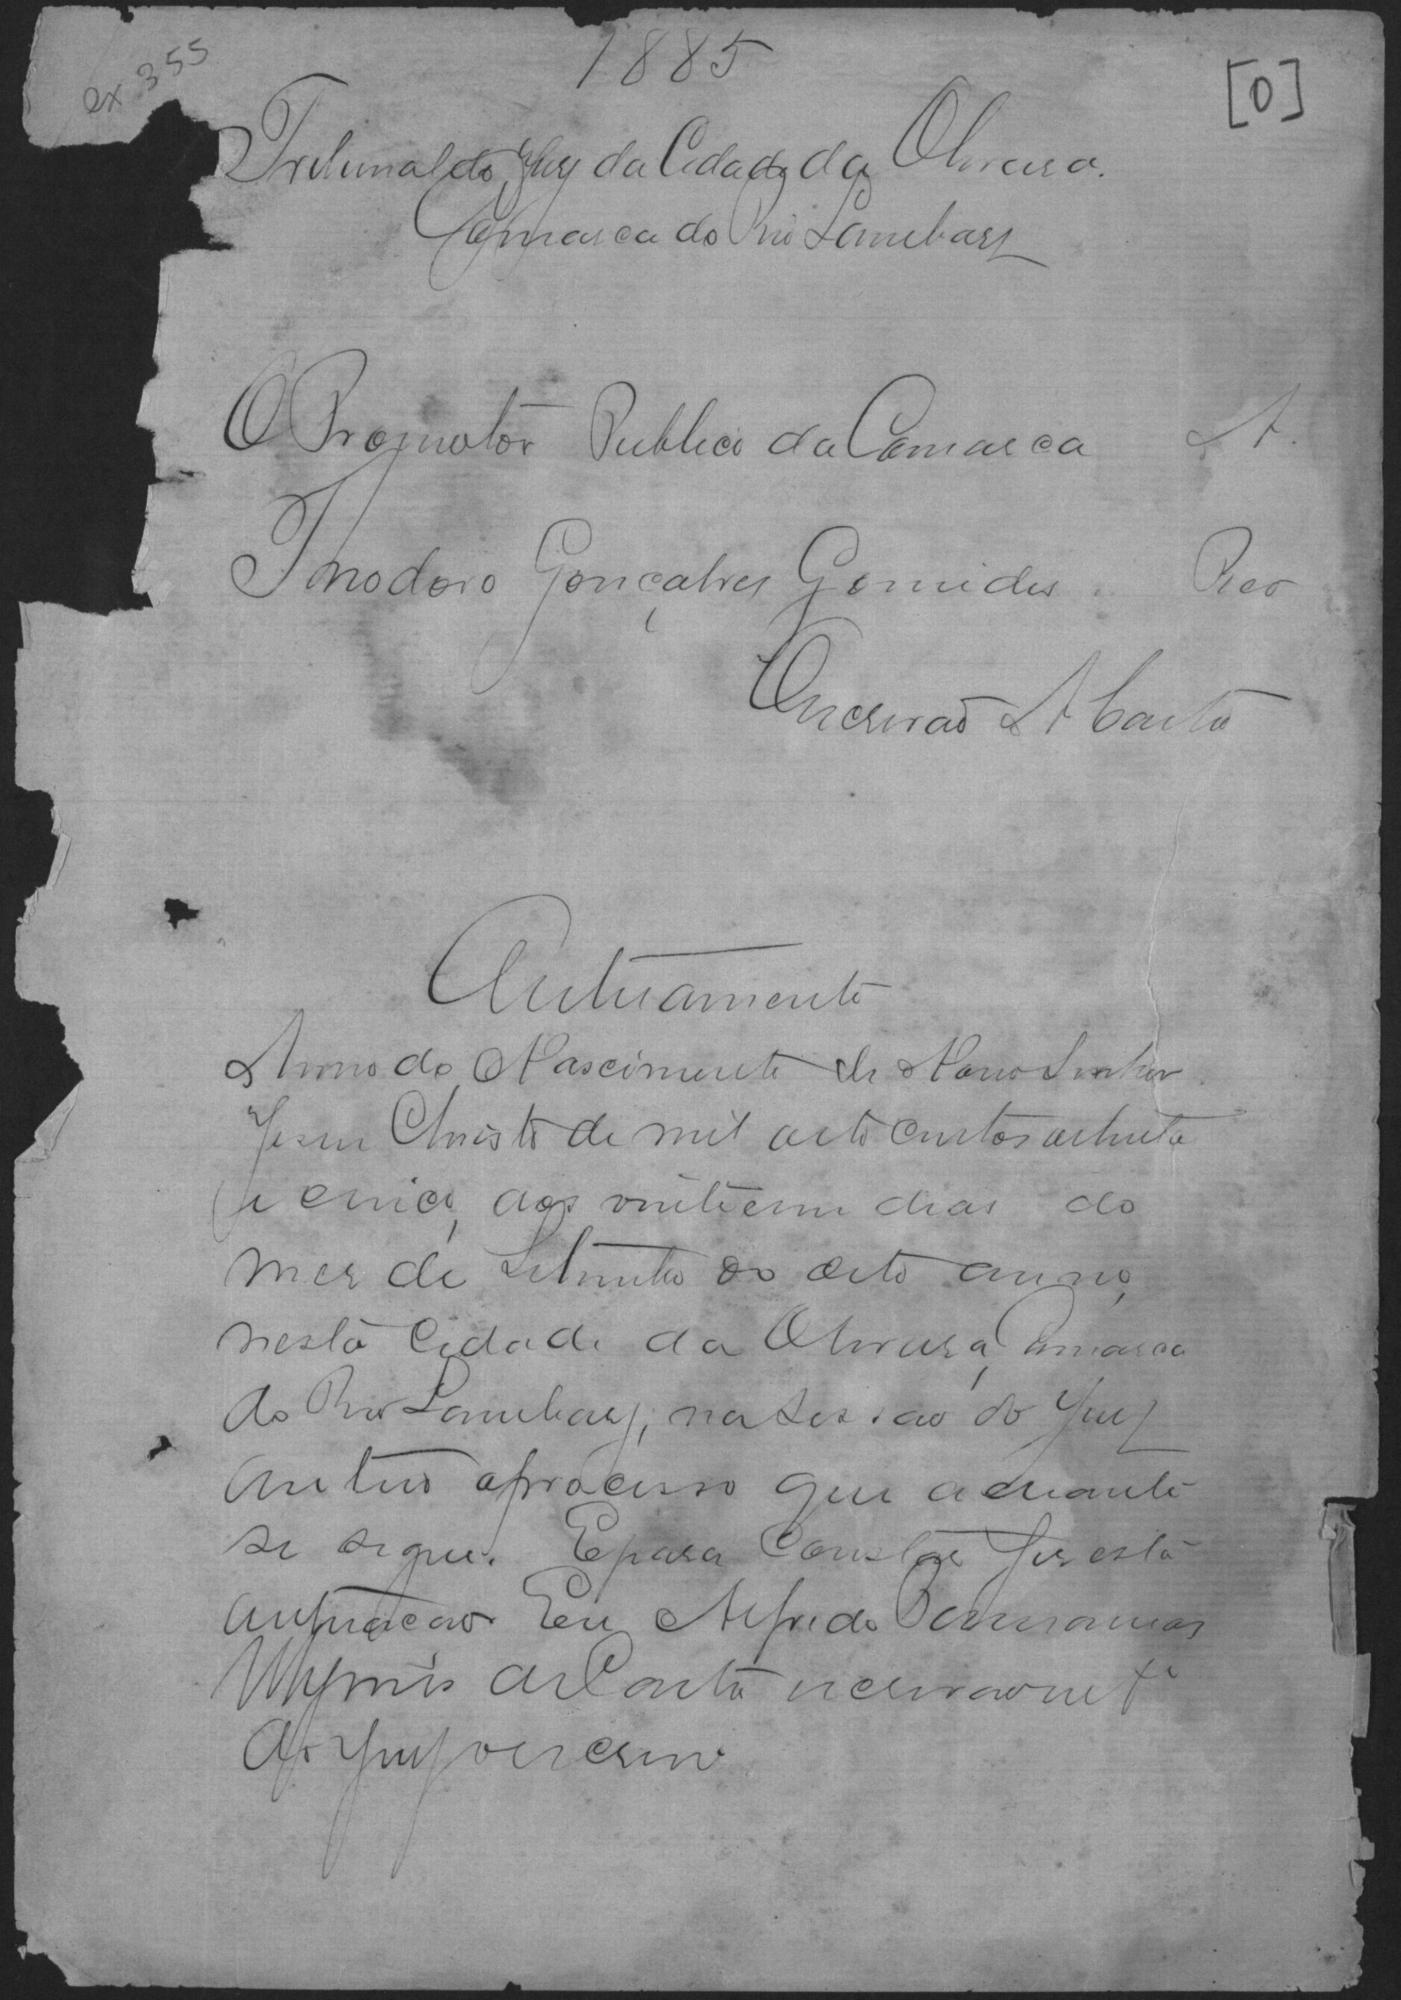 1885
cx 355
[0]
Tribunal do Jury da Cidade da Oliveira.
Comarca do Rio Lambary
O Promotor Publico da Comarca A.
Theodoro Gonçalves Gomides Reo
Escrivaõ A Costa
Autuamento
Anno do Nascimento de Nosso Senhor
Jesus Christo de mil oito centos oitenta
e cinco, aos vinte e um dias do
mes de Setembro do dito anno,
nesta Cidade da Oliveira, Comarca
do Rio Lambary, na Sessão do Jury
autuo o processo que adiante
se segue. E para constar fiz esta
autuacao Eu Alfredo
de Costa escrivão
do Jury o escrevo